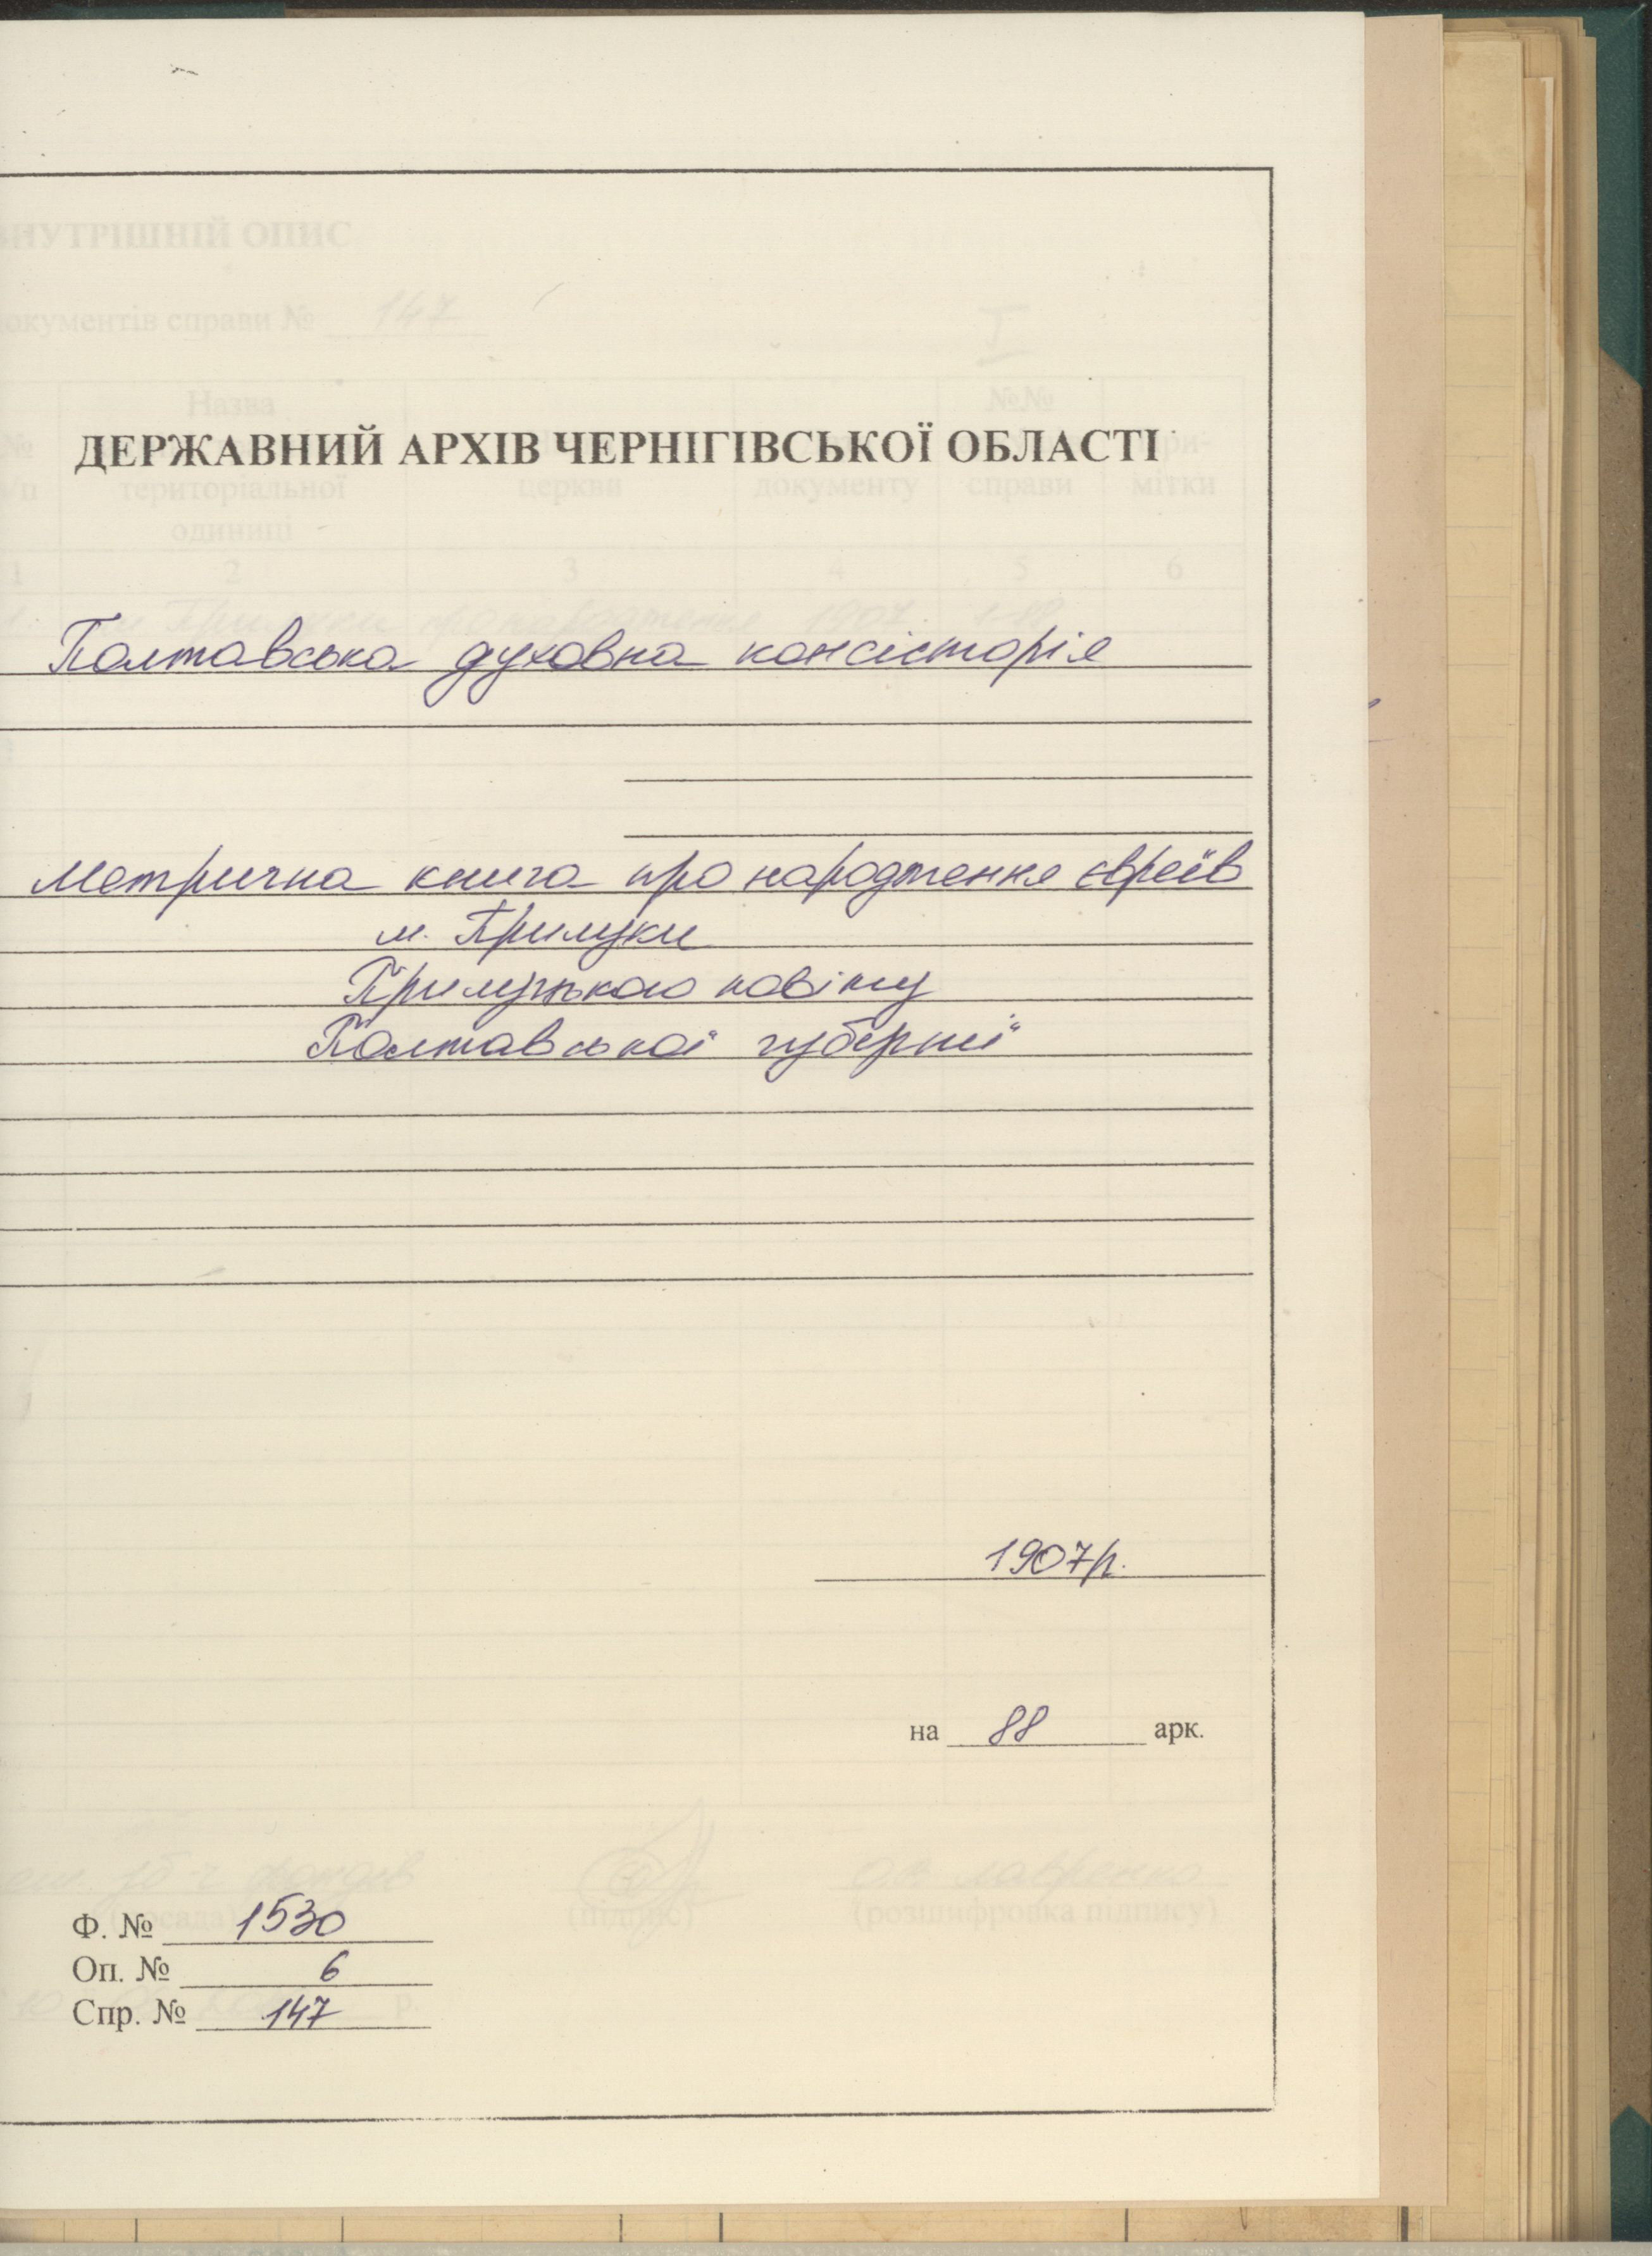 ДЕРЖАВНИЙ АРХІВ ЧЕРНІГІВСЬКОЇ ОБЛАСТІ
Полтавська духовна консісторія
Метрична книга про народження євреїв
м. Прилуки
Прилуцького повіту
Полтавської губернії
1907р.
на 88 арк.
Ф. № 1530
Оп. № 6
Спр. № 147